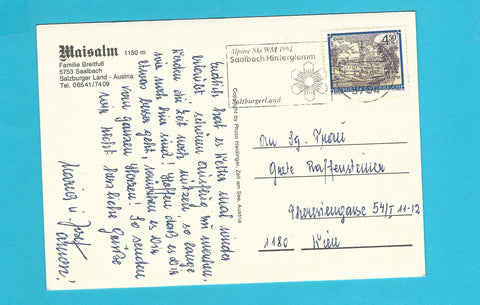 Maisalm 1150 m
Familie Breitfuß
5753 Saalbach
Salzburger Land - Austria
Tel. 06541/7409
Endlich hat es Wetter mal wieder
erlaubt schönen Ausflug zu machen,
werden die Zeit noch nützen so lange
wir noch hier sind! Hoffen daß es Dir
etwas besser geht, wünschen es Dir
vom ganzen Herzen! So senden
wir recht herzliche Grüße
Maria u. Josef
Copyright by Photo Haidinger, Zell am See, Austria
Alpine Ski WM 1991
Saalbach Hinterglemm
SalzburgerLand
4.50
REPUBLIK ÖSTERREICH
An Sg. Frau
Grete Raffensteiner
Theresiengasse 54/I 11-12
1180 Wien